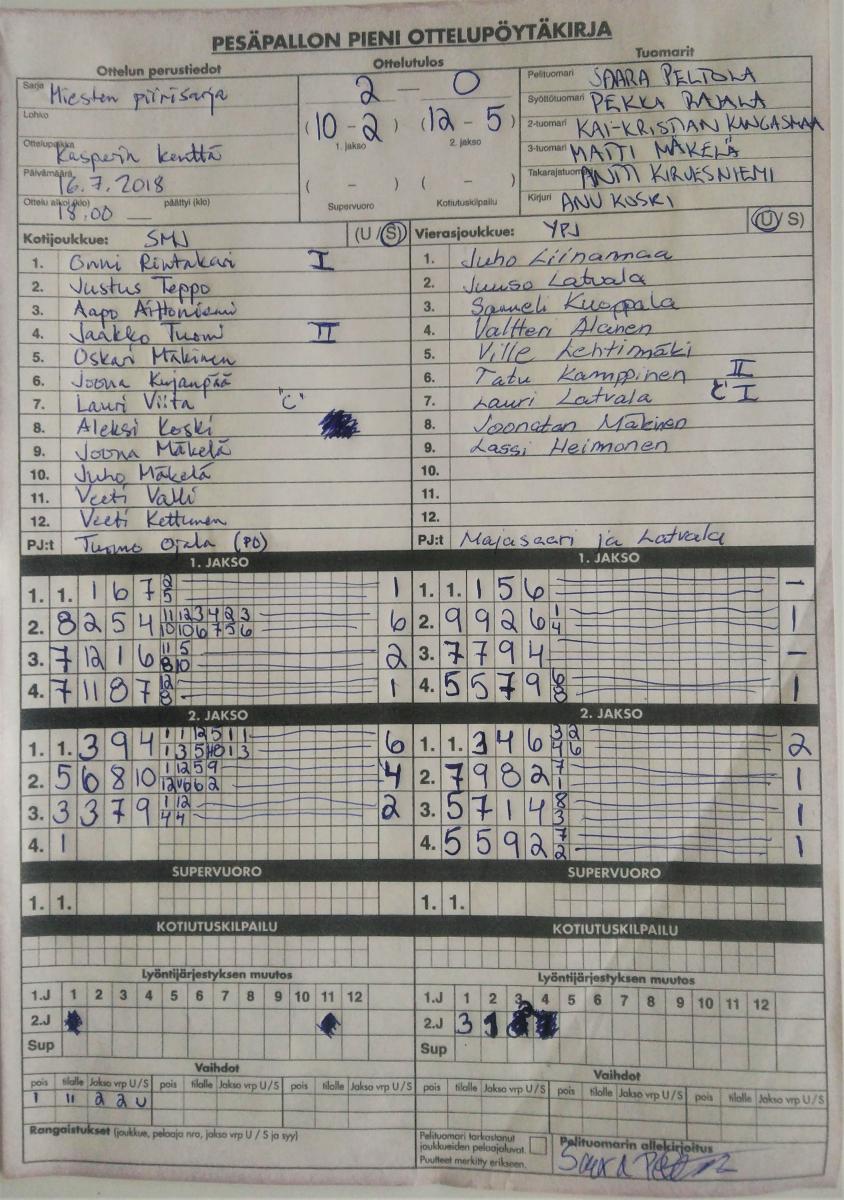 PESÄPALLON PIENI OTTELUPÖYTÄKIRJA
Ottelun perustiedot
Sarja Miesten piirisarja
Lohko
Ottelupaikka Kasperin kenttä
Päivämäärä 16.7.2018
Ottelu alkoi (klo) 18.00 päättyi (klo)
Ottelutulos
2 — 0
(10 - 2) (12 - 5)
1. jakso 2. jakso
( - ) ( - )
Supervuoro Kotiutuskilpailu
Tuomarit
Pelituomari SAARA PELTOLA
Syöttötuomari PEKKA RAJALA
2-tuomari KAI-KRISTIAN KANGASMAA
3-tuomari MATTI MÄKELÄ
Takarajatuomari ANTTI KIRVESNIEMI
Kirjuri ANU KOSKI
Kotijoukkue: SMJ (U / S)
1. Onni Rintakari I
2. Justus Teppo
3. Aapo
4. Jaakko Tuomi II
5. Oskari Mäkinen
6. Joona Kujanpää
7. Lauri Viita "C"
8. Aleksi Koski
9. Joona Mäkelä
10. Juho Mäkelä
11. Veeti Valli
12. Veeti Kettunen
PJ:t Tuomo Ojala (PD)
Vierasjoukkue: YPJ (U / S)
1. Juho Liinamaa
2. Juuso Latvala
3. Samueli Kuoppala
4. Valtteri Alanen
5. Ville Lehtimäki
6. Tatu Kamppinen II
7. Lauri Latvala C I
8. Joonatan Mäkinen
9. Lassi Heinonen
10.
11.
12.
PJ:t Majasaari ja Latvala
1. JAKSO
1. 1. 1 6 7 2 5 1
2. 8 2 5 4 11 12 3 4 2 3 10 10 6 7 5 6 6
3. 7 12 1 6 11 5 8 10 2
4. 7 11 8 7 12 8 1
1. JAKSO
1. 1. 1 5 6 –
2. 9 9 2 6 1 4 1
3. 7 7 9 4 –
4. 5 5 7 9 6 8 1
2. JAKSO
1. 1. 3 9 4 1 1 12 5 1 1 6
2. 5 6 8 10 1 12 5 9 4
3. 3 3 7 9 1 12 4 4 2
4. 1
2. JAKSO
1. 1. 3 4 6 3 2 4 6 2
2. 7 9 8 2 7 1 1
3. 5 7 1 4 8 3 1
4. 5 5 9 2 7 2 1
SUPERVUORO
1. 1.
SUPERVUORO
1. 1.
KOTIUTUSKILPAILU
KOTIUTUSKILPAILU
Lyöntijärjestyksen muutos
1.J 1 2 3 4 5 6 7 8 9 10 11 12
2.J
Sup
Lyöntijärjestyksen muutos
1.J 1 2 3 4 5 6 7 8 9 10 11 12
2.J 3 1
Sup
Vaihdot
pois tilalle Jakso vrp U / S pois tilalle Jakso vrp U / S pois tilalle Jakso vrp U / S
1 11 2 2 U
Vaihdot
pois tilalle Jakso vrp U / S pois tilalle Jakso vrp U / S pois tilalle Jakso vrp U / S
Rangaistukset (joukkue, pelaaja nro, jakso vrp U / S ja syy)
Pelituomari tarkastanut
joukkueiden pelaajaluvat.
Puutteet merkitty erikseen.
Pelituomarin allekirjoitus